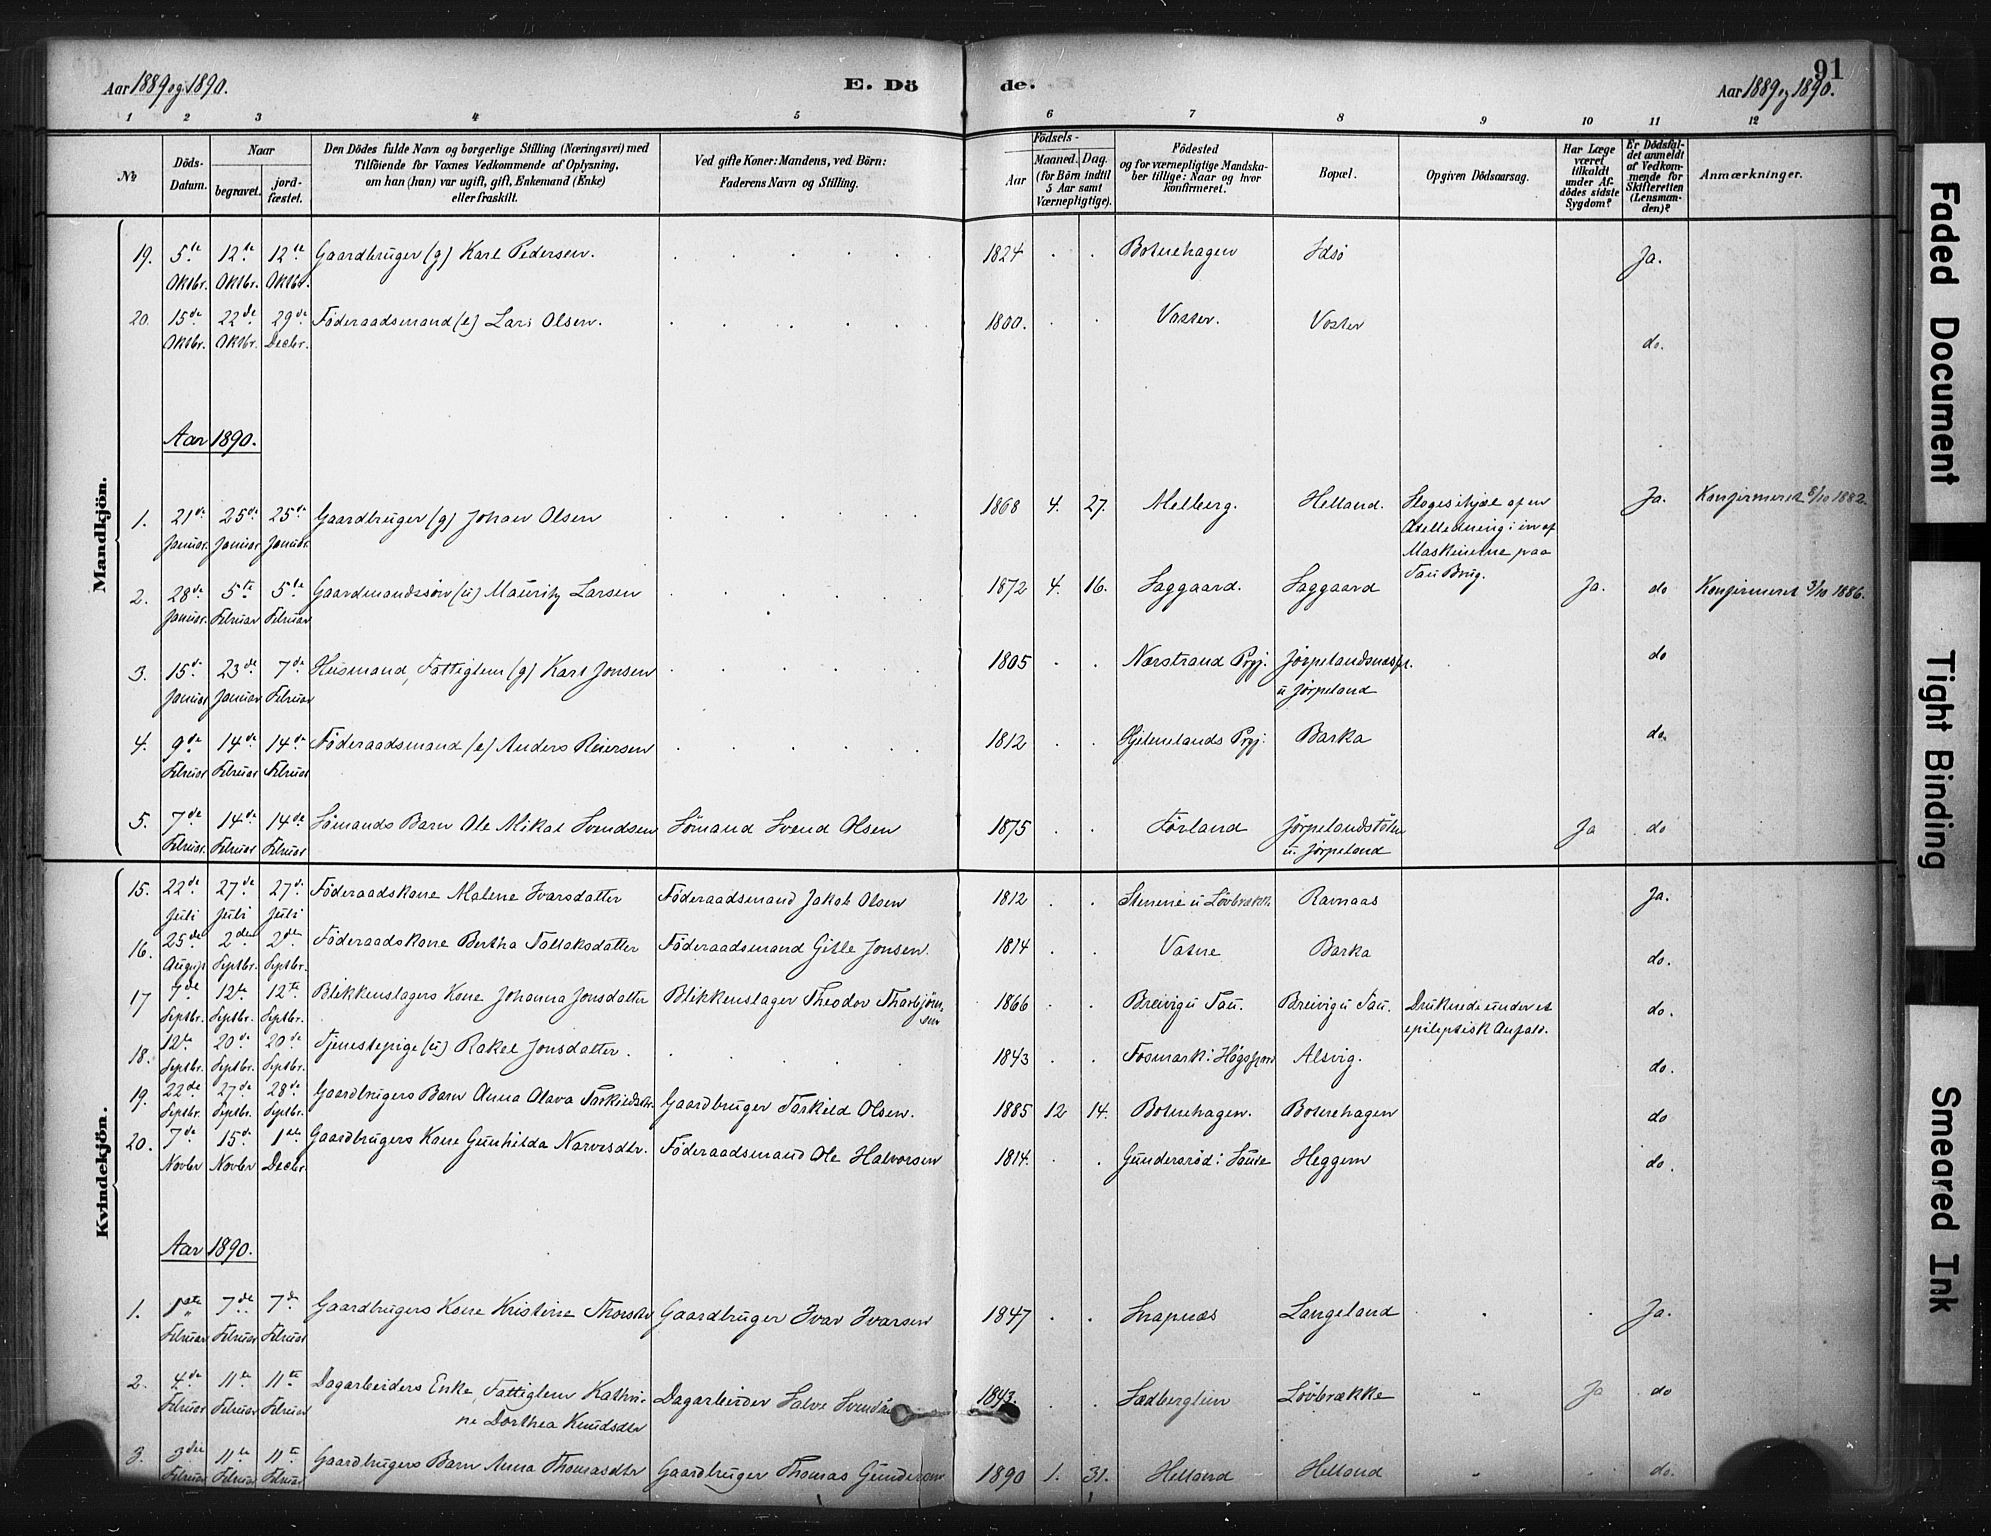 Aar 1889 og 1890.
E. Dö
de.
91
Aar 1889 og 1890.
1 2 3 4 5 6 7 8 9 10 11 12
№
Döds-Datum.
Naar
begravet.
jord-fæstet.
Den Dödes fulde Navn og borgerlige Stilling (Næringsvei) med
Tilföiende for Voxnes Vedkommende af Oplysning,
om han (hun) var ugift, gift, Enkemand (Enke)
eller fraskilt.
Ved gifte Koner: Mandens, ved Börn:
Faderens Navn og Stilling.
Födsels-
Aar
Maaned. Dag.
(for Börn indtil
5 Aar samt
Værnepligtige).
Födested
og for værnepligtige Mandska-
ber tillige: Naar og hvor
konfirmeret.
Bopæl.
Opgiven Dödsaarsag.
Har Læge
været
tilkaldt
under Af-
dödes sidste
Sygdom?
Er Dödsfal-
det anmeldt
af Vedkom-
mende for
Skifteretten
(Lensman-
den)?
Anmærkninger.
Mandkjön.
19. 5te Oktbr. 12te Oktbr. 12te Oktbr. Gaardbruger (g) Karl Pedersen. 1824 Botnehagen Idsö Ja.
20. 15de Oktbr. 22de Oktbr. 29de Decbr. Föderaadsmand (e) Lars Olsen. 1800. Vaster. Voster do.
Aar 1890.
1. 21de Januar. 25de Januar 25de Januar Gaardbruger (g) Johan Olsen 1868 4. 27. Melberg. Helland. Sloges ihjæl af en
Axelledning i en af
Maskinerne paa
Tau Brug. Ja. Konfirmeret 8/10 1882.
2. 28de Januar. 5te Februar 5te Februar Gaardmandssön (u) Mauritz Larsen 1872 4. 16. Saggaard. Saggaard Ja. do Konfirmeret 3/10 1886.
3. 15de Januar 23de Januar 7de Februar Husmand, Fattiglem (g) Karl Jonsen 1805 Nærstrand Prgj. Jörpelandsnæspl.
u Jörpeland do
4. 9de Februar 14de Februar 14de Februar Föderaadsmand (e) Anders Reiersen 1812 Hjelmelands Prgj. Barka do.
5. 7de Februar. 14de Februar 14de Februar Sömands Barn Ole Mikal Svendsen Sömand Svend Olsen 1875 Förland Jörpelandstölen
u. Jörpeland Ja do
Kvindekjön.
15. 22de Juli 27de Juli 27de Juli Föderaadskone Malene Ivarsdatter Föderaadsmand Jakob Olsen 1812 Stenene u Lövbrække Ravnaas Ja.
16. 25de August 2den Septbr. 2den Septbr. Föderaadskone Bertha Tollaksdatter Föderaadsmand Gitle Jonsen. 1814 Vatne Barka do.
17 7de Septbr. 12te Septbr. 12te Septbr. Blikkenslagers Kone Johanna Jonsdatter Blikkenslager Theodor Thorbjörn-
sen 1866 Breivig u Tau. Breivig u Tau. Druknede under et
epileptisk Anfald. do.
18. 12te Septbr. 20de Septbr. 20de Septbr. Tjenestepige (u) Rakel Jonsdatter. 1843 Fosmark i Högsfjord Alsvig. do.
19. 22de Septbr. 27de Septbr. 28de Septbr. Gaardbrugers Barn Anna Olava Torkildsdtr. Gaardbruger Torkild Olsen. 1885 12 14. Botnehagen. Botnehagen do
20. 7de Novbr 15de Novbr 1ste Decbr. Gaardbrugers Kone Gunhilda Narvesdtr. Föderaadsmand Ole Halvorsen 1814. Gundersröd i Saude Heggem do.
Aar 1890.
1. 1ste Februar 7de Februar 7de Februar Gaardbrugers Kone Kristine Thorsdtr Gaardbruger Ivar Ivarsen 1847 Snapnæs Langeland Ja.
2. 4de Februar 11te Februar 11te Februar Dagarbeiders Enke, Fattiglem Kathri-
ne Dorthea Knudsdtr Dagarbeider Salve 1843. Sædberglien Lövbrække Ja do
3. 3die Februar 11te Februar 11te Februar Gaardbrugers Barn Anna Thomasdtr Gaardbruger Thomas Gundersen 1890 1. 31. Helland Helland do.
Faded Document
Tight Binding
Smeared Ink